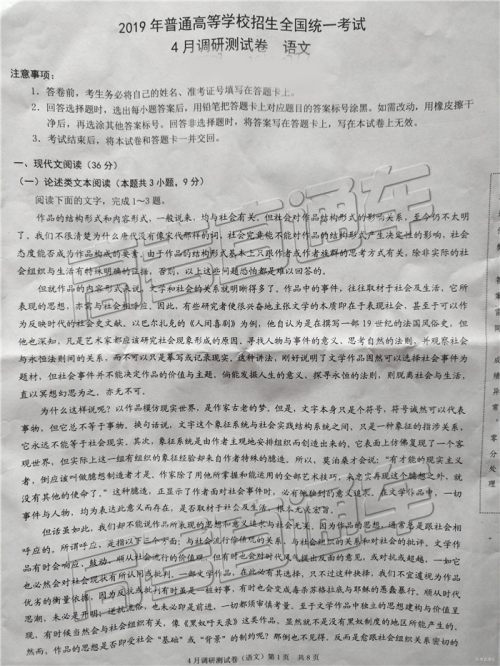 2019 年普通高等学校招生全国统一考试
4 月调研测试卷 语文
注意事项:
1. 答卷前,考生务必将自己的姓名、准考证号填写在答题卡上。
2. 回答选择题时,选出每小题答案后,用铅笔把答题卡上对应题目的答案标号涂黑。如需改动,用橡皮擦干
净后,再选涂其他答案标号。回答非选择题时,将答案写在答题卡上,写在本试卷上无效。
3. 考试结束后,将本试卷和答题卡一并交回。
一、现代文阅读(36 分)
(一)论述类文本阅读(本题共 3 小题,9 分)
阅读下面的文字,完成 1~3 题。
作品的结构形式和内容形式,一般说来,均与社会有关。但社会对作品结构形式的影响关系,至今仍不太明
了,我们不很清楚为什么唐代没有像宋代那样的词,社会究竟能不能对作品的结构形式产生决定性的影响,社会
态度能否成为作品构成的要素。由于作品的结构形式基本上只跟作者或作者族群的思考方式有关,除非实际的社
会组织与生活有特殊明确的证据,否则,以上这些问题恐怕都是难以回答的。
但就作品的内容形式来说,文学和社会的关系就明晰得多了。作品中的事件,往往取材于社会及生活,它所
表现的思想,亦需与社会相呼应。因此,有些研究者便很兴奋地主张文学的本质即在于表现社会,甚至于可以作
为反映时代的社会史文献。以巴尔扎克的《人间喜剧》为例,他自认为是在撰写一部 19 世纪的法国风俗史。但
他也深知,凡是艺术家都应该研究社会现象形成的原因,寻找人物与事件的意义、思考自然的法则,并观察社会
与永恒法则间的关系,而不可以只是摹写或记录现实。这种讲法,刚好说明了文学作品固然可以选择社会事件为
题材,但社会事件并不能决定作品的价值与主题。倘能发掘人生的意义、探寻永恒的法则,则脱离社会与生活,
直以冥想幻思为之,亦无不可。
为什么这样说呢?以作品模仿现实世界,是作家古老的梦。但是,文字本身只是个符号,符号诚然可以代表
事物,但它总不等于事物。换句话说,文字这个象征系统与社会实践结构系统之间,只是一种象征的指涉关系,
它永远不能等于社会现实。其次,象征系统是由作者主观地安排组织而创造出来的,它表面上仿佛复现了一个客
现世界,但实际上这一组有组织的象征经验却来自作者特殊的臆造。所以,莫泊桑才会说:"有才能的现实主义
者,倒应该叫做臆想制造者才是。作家除了用他所掌握和能运用的全部艺术技巧,来忠实再现这个臆想之外,就
没有其他的使命了。"这种臆造,正显示了作者面对社会事件时,必有他独到的意义追求。在文学作品中,一切
事件与人物,均为表达此意义而存在,是否取材于社会及生活,根本无关宏旨。
但话虽如此,我们却不能说作品所表现的思想和意义追求与社会无关。因为作品的思想,通常总是跟社会相
呼应的。所谓呼应,是指以下三个方面:与社会流行价值观的关系、与社会组织的关系和对社会的批评。文学作
品有时会响应、鼓动、顺从社会流行的价值观,但有时也会对时代风气提出反面的意见,或对抗或超越,一如它
也必然会对社会现状有所认同或批判。一部文学作品,在此必有其选择,只不过这种抉择,我们不宜遽视为作品
优劣的衡量依据,因为反叛或批判有时虽是一种好事,有时也会变成毒杀苏格拉底与耶稣的愚暴行为。顺从时代
思潮,未必是开明;逆抗流俗,也未必即是前进,一切都须审慎考量。至于文学作品中独立的思想建构与价值呈
现,有时候当然会与社会组织有关,像《黑奴吁天录》这类作品,显然就不是没有黑奴制度的地区所能产生的。
然而,作品的思想是否即受社会"基础"或"背景"的制约呢?那倒也不见得。反而是愈跟社会组织关系密切的
4 月调研测试卷(语文)第 1 页 共 8 页